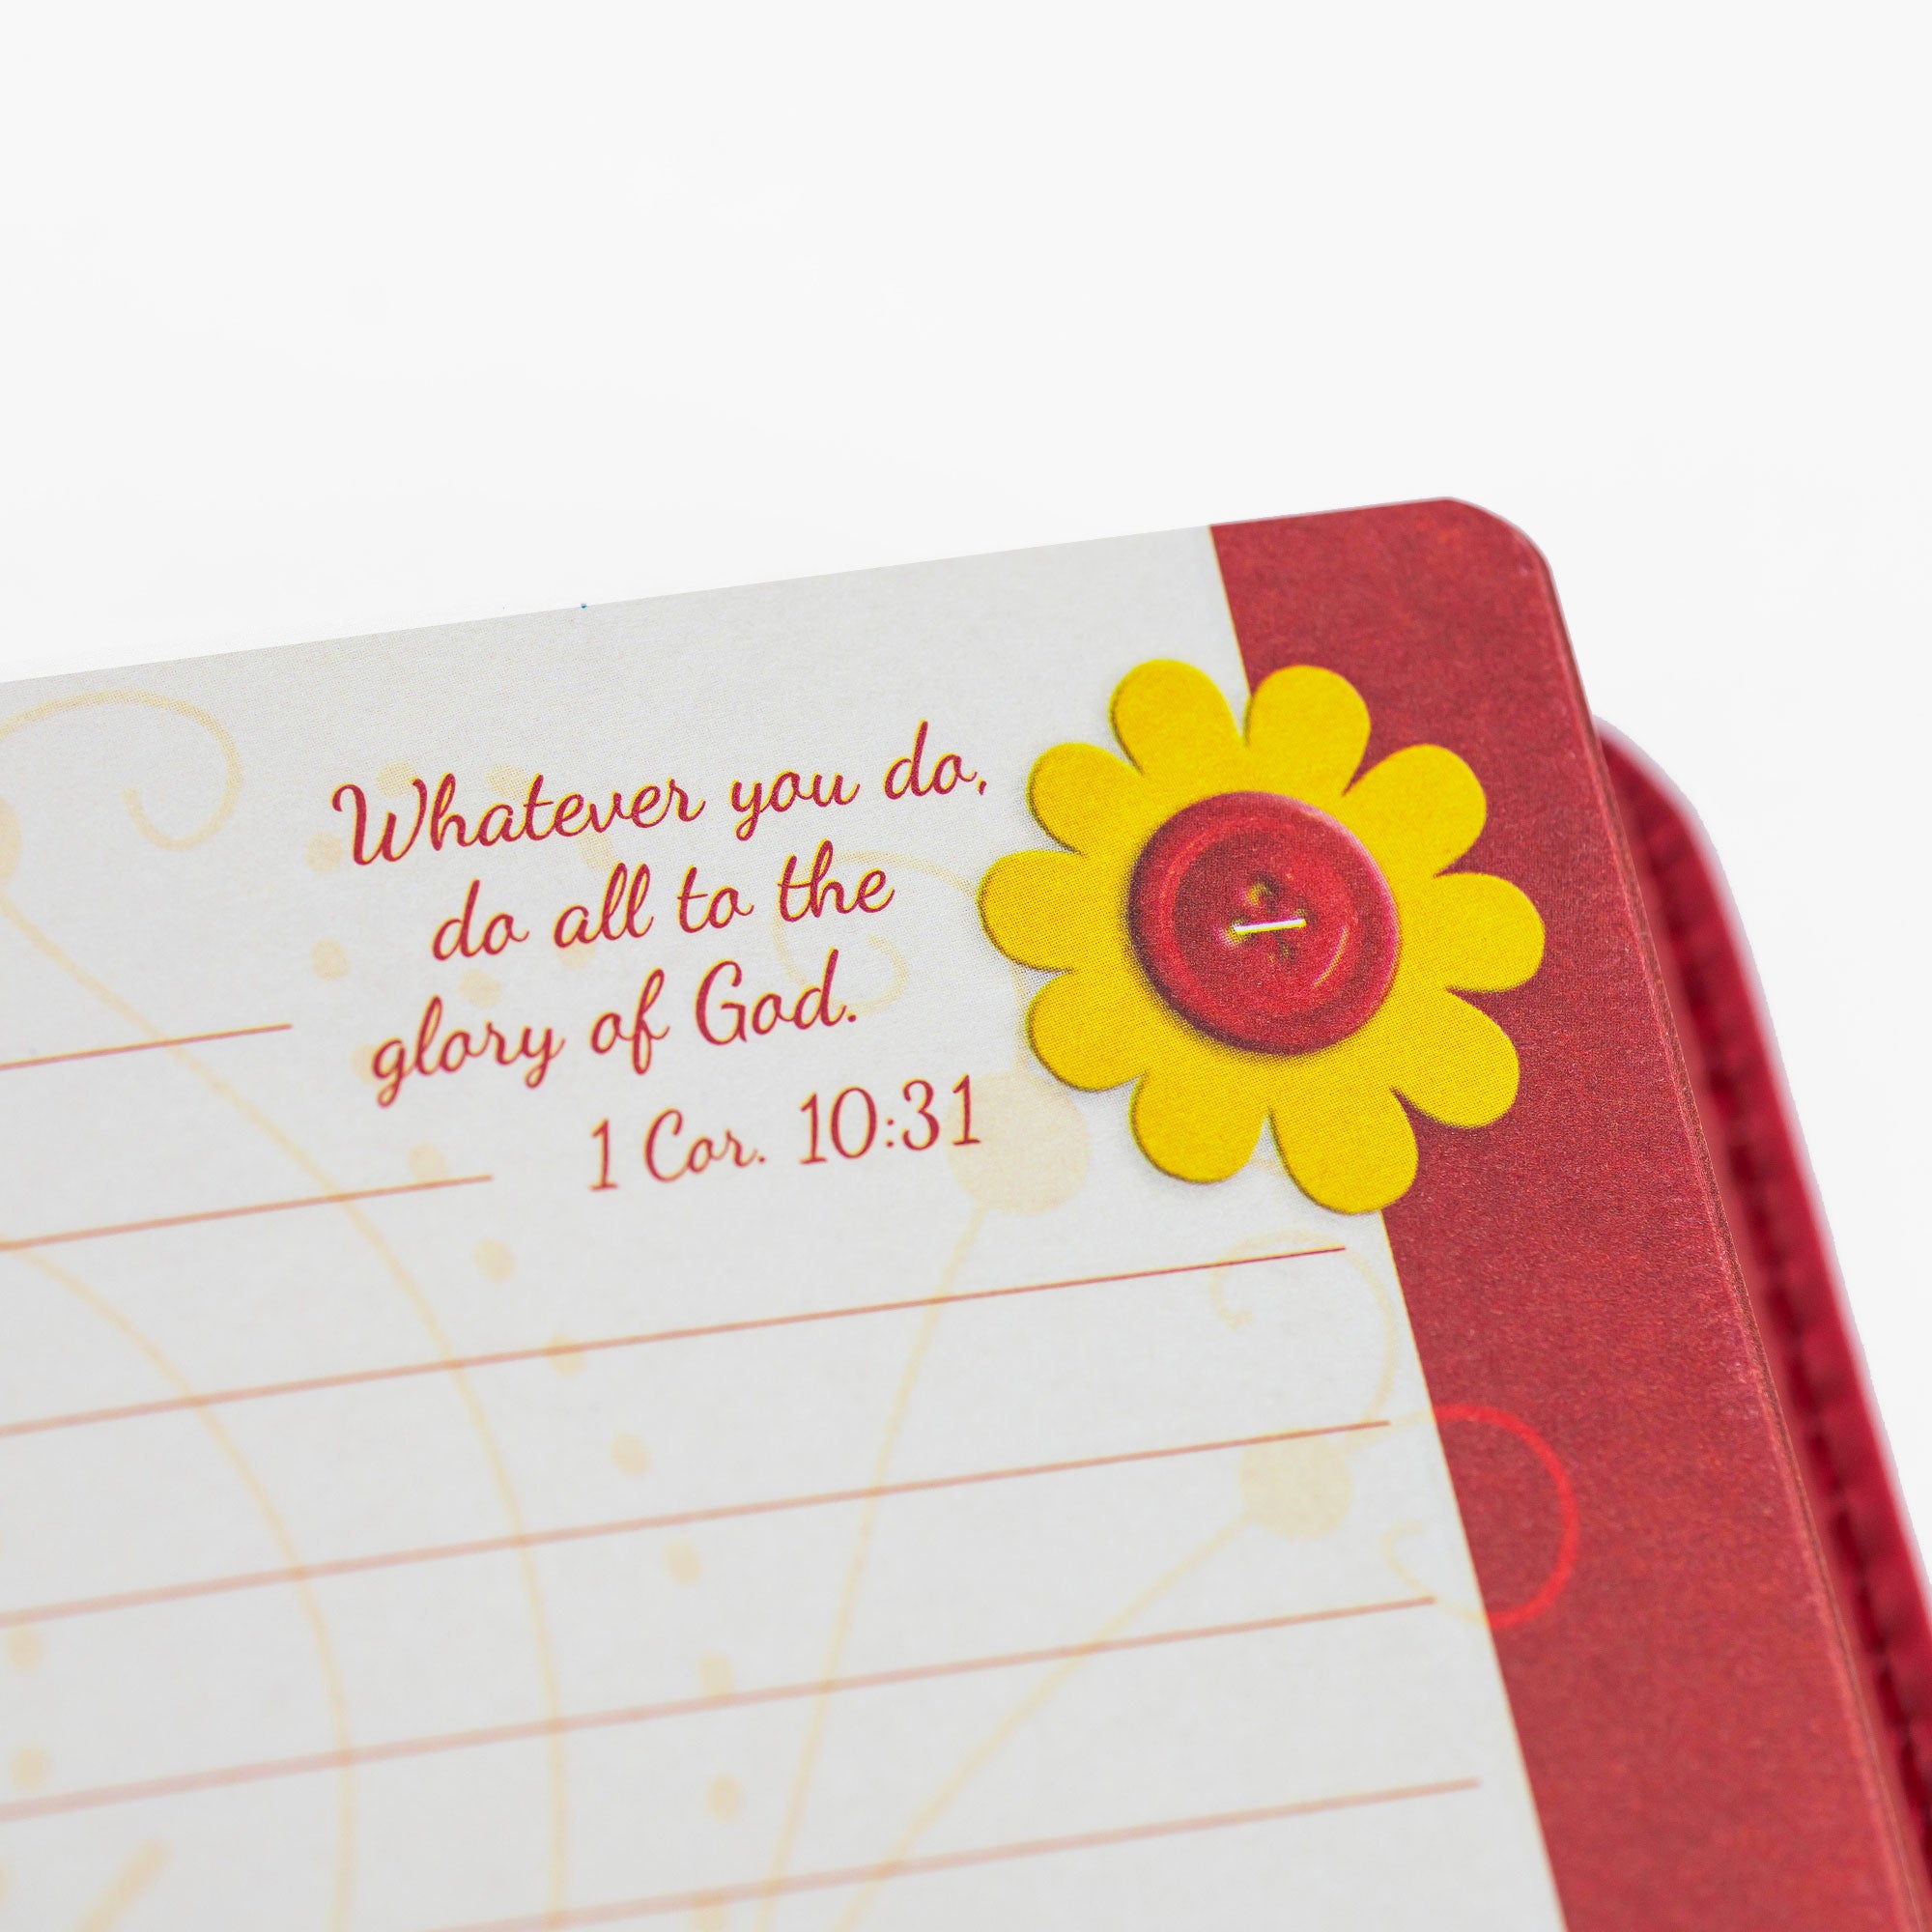 Whatever you do,
do all to the
glory of God.
1 Cor. 10:31